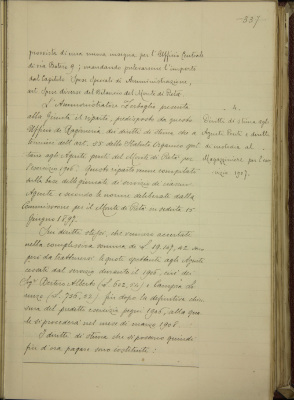 337
provvista di una nuova insegna per l'Ufficio Centrale
di via Botero 9; mandando prelevarne l'importo
dal Capitolo Spese Generali di Amministrazione,
art. Spese diverse del Bilancio del Monte di Pietà.
L'Amministratore presenta
alla Giunta il riparto, predisposto da questo
Ufficio di Ragioneria dei diritti di stima che a
termini dell'art. 58 dello Statuto Organico spet-
tano agli Agenti periti del Monte di Pietà per
l'esercizio 1906. Questo riparto venne compilato
sulla base delle giornate di servizio di ciascun
Agente e secondo le norme deliberate dalla
Commissione per il Monte di Pietà in seduta 15
Giugno 1897.
4.
Diritti di stima agli
Agenti Periti e diritti
di custodia al
Magazziniere per l'eser-
cizio 1907.
Tali diritti stessi, che vennero accertati
nella complessiva somma di L. 19.147,42 sa-
pri da trattenersi le quote spettanti agli Agenti
cessati dal servizio durante il 1906, cioè dei
Sigg. Alberto (L. 602,54) e
(L. 755,22) fin dopo la definitiva chiu-
sura del predetto esercizio 1906, alla qua-
le si procederà nel mese di marzo 1908.
I diritti di stima che si possono quindi
fin d'ora pagare sono costituiti: